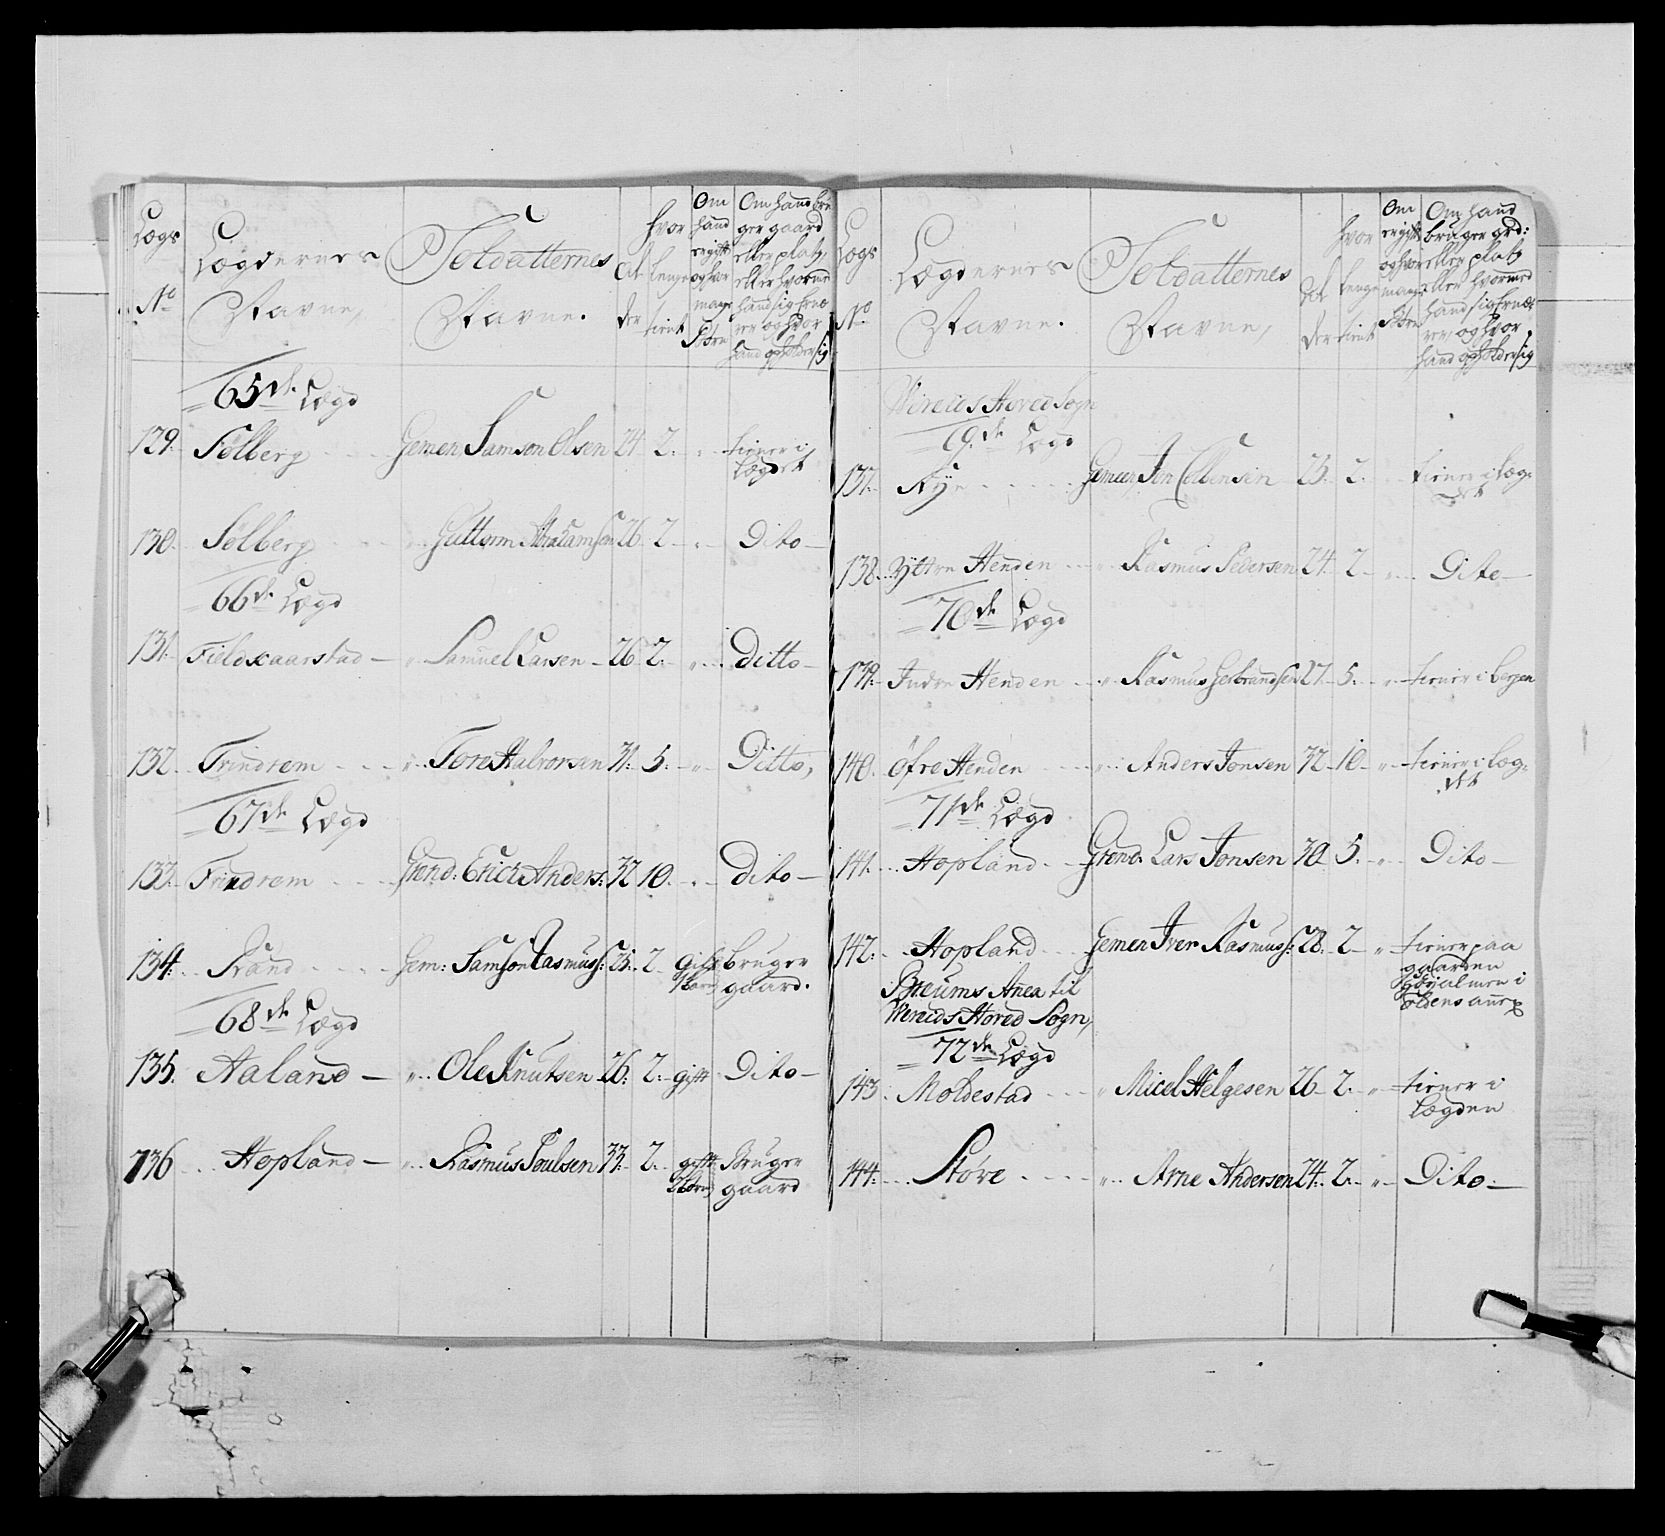 Lægs No
Lægdernes Navne,
Soldatternes Navne.
Al der
hvor lenge tient
Om hand er gift og hvor mange Børn
Om hand bru ger gaard eller platz, eller hvormed hand sig ernæ rer og hvor hand opholder sig
65de Lægd
129. Sølberg Gemen, Samson Olsen 24. 2. tiener i
Lægdet
130. Sølberg Guttorm Abrahamsen 26. 2. Dito
66de Lægd
131. Fieldskaarstad Samuel Larsen 26. 2. Ditto
132. Frindrem Tore Halvorsen 31. 5. Ditto,
67de Lægd
133. Frindrem Grend: Erich Anders: 32 10. Dito
134. Strand Gem: Samson Rasmus: 25. 2 gift bruger
1 barn gaard.
68de Lægd
135. Aaland Ole Knutsen 26. 2. gift Dito
136 Hopland Rasmus Poulsen 33. 2. gift Bruger
2 børn gaard
Lægs No
Lægdernes Navne.
Soldatternes Navne,
Al der
hvor lenge tient
Om er gift og hvor mange Børn
Om hand bruger grd: eller platz eller hvormed hand sig ernæ rer, og hvor hand opholder sig
Hoved Sogn
69de Lægd
137. Rye Gemeen, Jon Colbensen 23. 2. tiener i Læg=
det
138. Yttre Henden Rasmus Pedersen 24. 2. Dito
70de Lægd
139. Indre Henden Rasmus Gerbrandsen 27. 5. tiener i bergen
140. Øfre Henden Anders Jonsen 32 10. tiener i Læg=
det
71de Lægd
141. Hopland Grend: Lars Jonsen 30. 5. Dito
142. Hopland Gemen Iver Rasmus: 28. 2 tiener paa
gaarden
i
annex
Breums Anex til
Hoved Sogn,
72de Lægd
143. Moldestad Micel Helgesen 26. 2. tiener i
Lægden
144. Støve Arne Andersen 24. 2. Dito